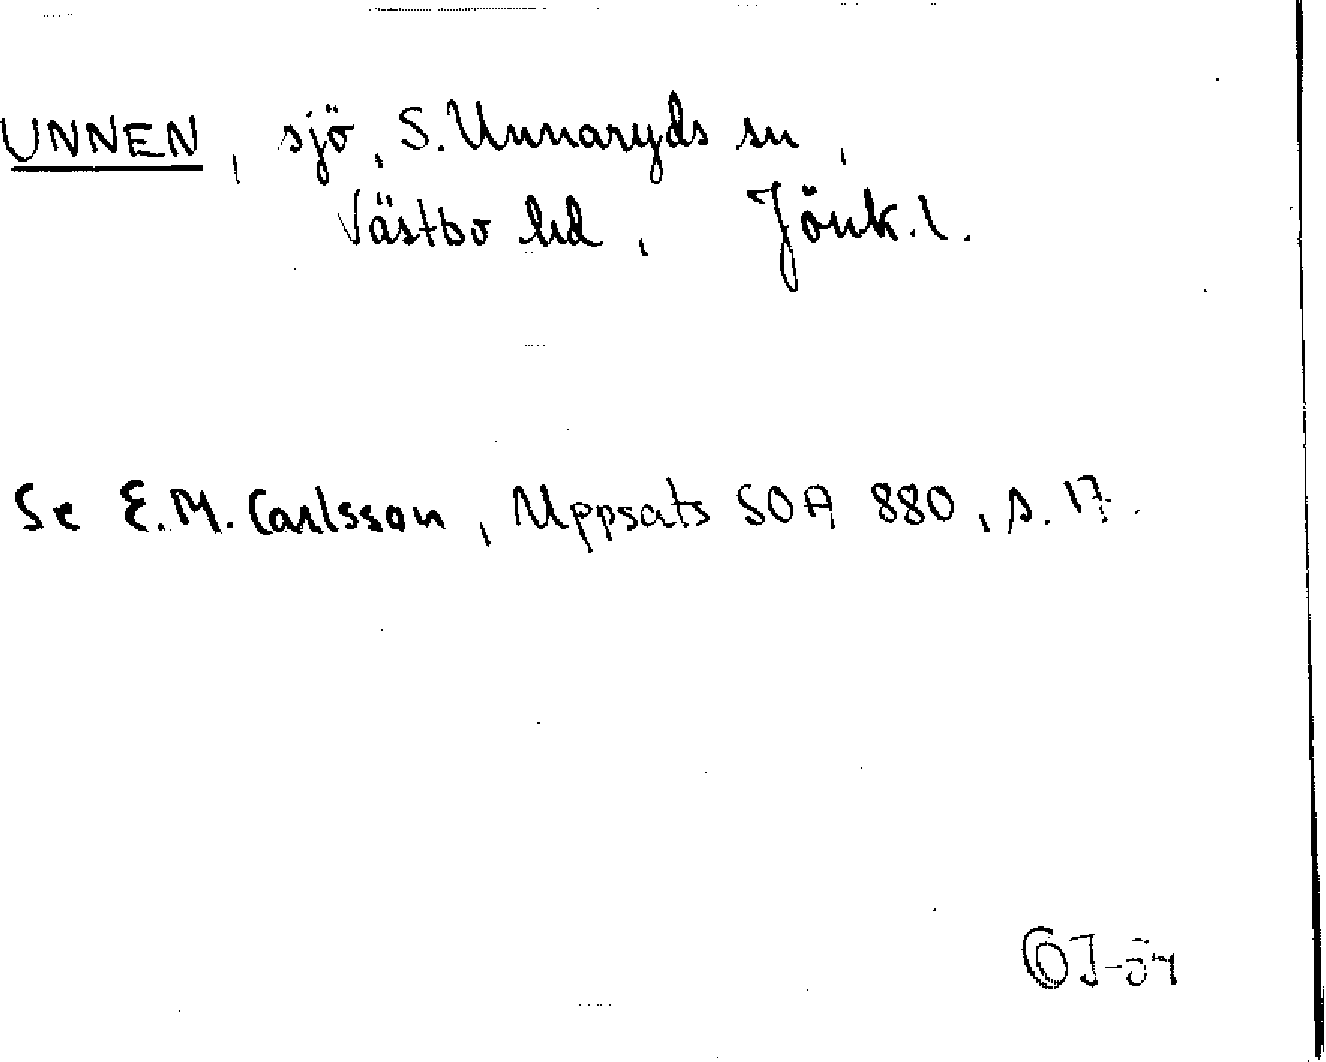 UNNEN, sjö, S. Unnaryds sn,
Västbo hd, Jönk. l.
Se E.M. Carlsson, Uppsats SOA 880, s. 17.